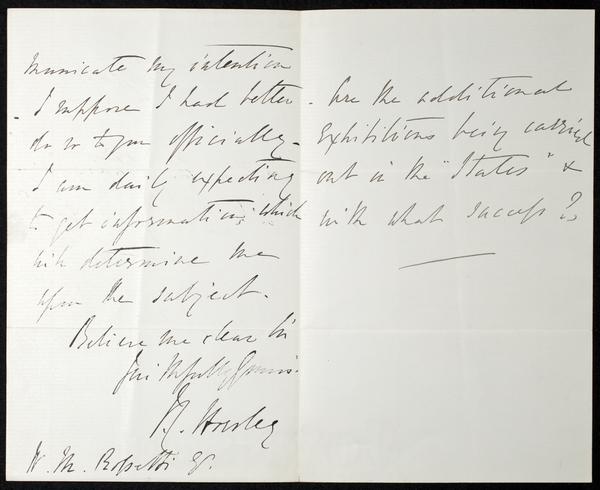 municate my intention
- I suppose I had better
do so to you officially -
I am daily expecting
to get information which
will determine me
upon the subject.
Believe me dear Sir
Faithfully Yours.
J. C. Horsley
W. M. Rossetti Esq.
- Are the additional
Exhibitions being carried
out in the "States" &
with what success?